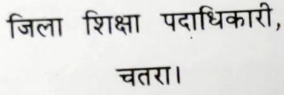 जिला शिक्षा पदाधिकारी,
चतरा।